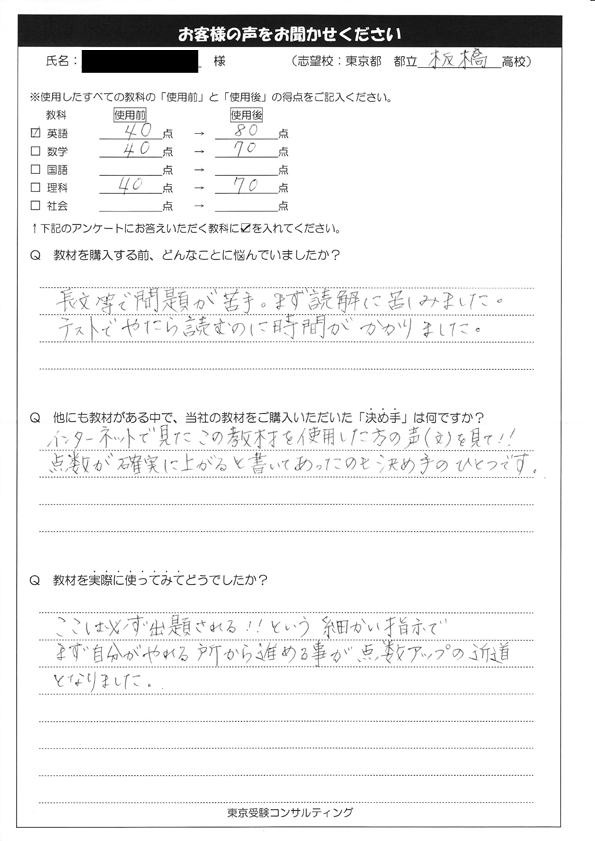 お客様の声をお聞かせください
氏名： 様 （志望校：東京都 都立 板橋 高校）
※使用したすべての教科の「使用前」と「使用後」の得点をご記入ください。
教科 使用前 使用後
☑ 英語 40 点 → 80 点
□ 数学 40 点 → 70 点
□ 国語 点 → 点
□ 理科 40 点 → 70 点
□ 社会 点 → 点
↑下記のアンケートにお答えいただく教科に☑を入れてください。
Q 教材を購入する前、どんなことに悩んでいましたか？
長文等で問題が苦手。まず読解に苦しみました。
テストでやたら読むのに時間がかかりました。
Q 他にも教材がある中で、当社の教材をご購入いただいた「決め手」は何ですか？
インターネットで見たこの教材を使用した方の声(文)を見て!!
点数が確実に上がると書いてあったのも決め手のひとつです。
Q 教材を実際に使ってみてどうでしたか？
ここは必ず出題される!!という細かい指示で
まず自分がやれる所から進める事が点数アップの近道
となりました。
東京受験コンサルティング